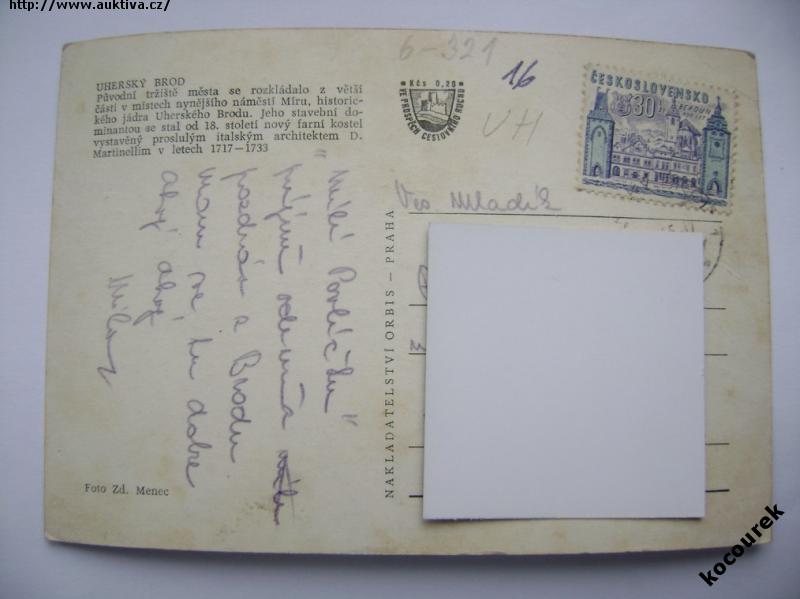 http://www.auktiva.cz/
UHERSKÝ BROD
Původní tržiště města se rozkládalo z větší
části v místech nynějšího náměstí Míru, historic-
kého jádra Uherského Brodu. Jeho stavební do-
minantou se stal od 18. století nový farní kostel
vystavěný proslulým italským architektem D.
Martinellim v letech 1717—1733
6-321
16
VH
Kčs 0,20
VE PROSPĚCH CESTOVNÍHO RUCHU
ČESKOSLOVENSKO
30
Mladík
NAKLADATELSTVÍ ORBIS — PRAHA
"Milí
pozdrav z Brodu
mám se tu dobře
ahoj ahoj
Foto Zd. Menec
kocourek